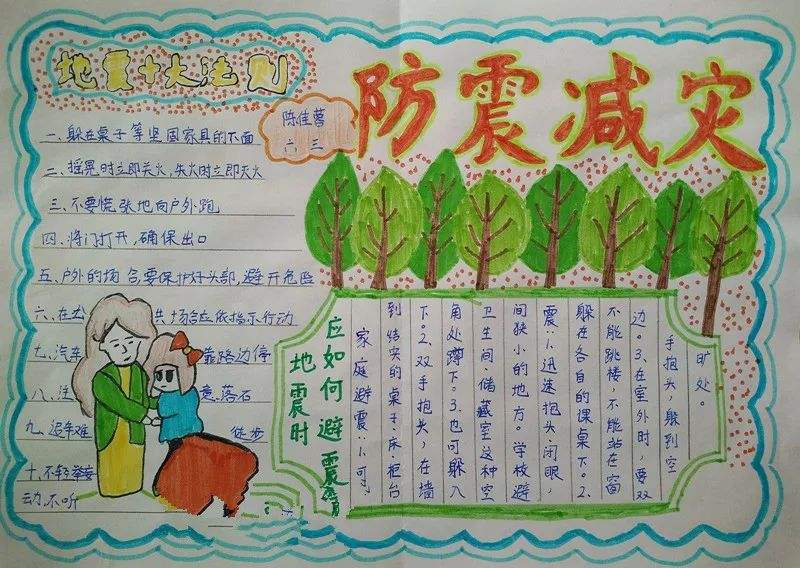 地震十大法则
陈佳蓉
六 三
防震减灾
一、躲在桌子等坚固家具的下面
二、摇晃时立即关火,失火时立即灭火
三、不要慌张地向户外跑
四、将门打开,确保出口
五、户外的场合要保护好头部,避开危险
六、在 共场合应依指示行动
七、汽车 靠路边停
八、注 意、落石
九、避难 徒步
十、不轻举妄
动,不听
地震时
应如何避震
家庭避震:1、可
到结实的桌子、床柜台
下。2、双手抱头,在墙
角处蹲下。3、也可躲入
卫生间、储藏室这种空
间狭小的地方。学校避
震:1、迅速抱头、闭眼,
躲在各自的课桌下。2、
不能跳楼,不能站在窗
边。3、在室外时,要双
手抱头,躲到空
旷处。